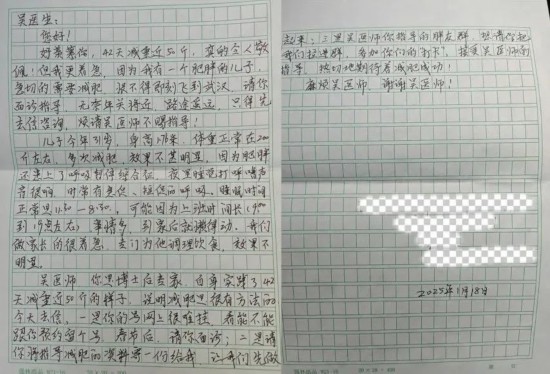 吴医生:
您好!
好羡慕你,42天减重近50斤,真的令人敬
佩!但我更着急,因为我有一个肥胖的儿子,
急切的需要减肥,恨不得马上飞到武汉,请你
面诊指导。无奈年关将近,路途遥远,只得先
去信咨询,烦请吴医师不赐指导!
儿子今年31岁,身高1.78米,体重正常在200
斤左右,多次减肥,效果不甚明显。因为肥胖
还患上了呼吸暂停综合征,夜里睡觉打呼噜声
音很响,时常有急促、短促的呼吸,睡眠时间
正常是11:30—8:30。可能因为上班时间长(9:00
到19点左右),事情多,到家后就懒得动。我们
做家长的很着急,专门为他调理饮食,效果不
明显。
吴医师,你是博士后专家,自身实践了42
天减重近50斤的样子,说明减肥是很有方法的。
今天去信,一是你的号网上很难挂,看能不能
跟你预约个号,春节后,请你面诊;二是请
你将指导减肥的资料寄一份给我,让我们先做
起来;三是吴医师你指导的胖友群,想请你把
我们拉进群,参加你们的打卡,接受吴医师的
指导。热切地期待着减肥成功!
麻烦吴医师,谢谢吴医师!
2025年1月18日